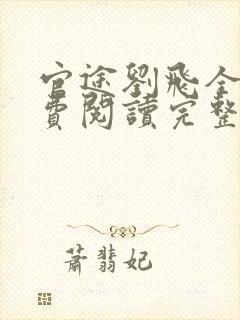 官途劉飛全
費閱讀完整
蕭翡妃